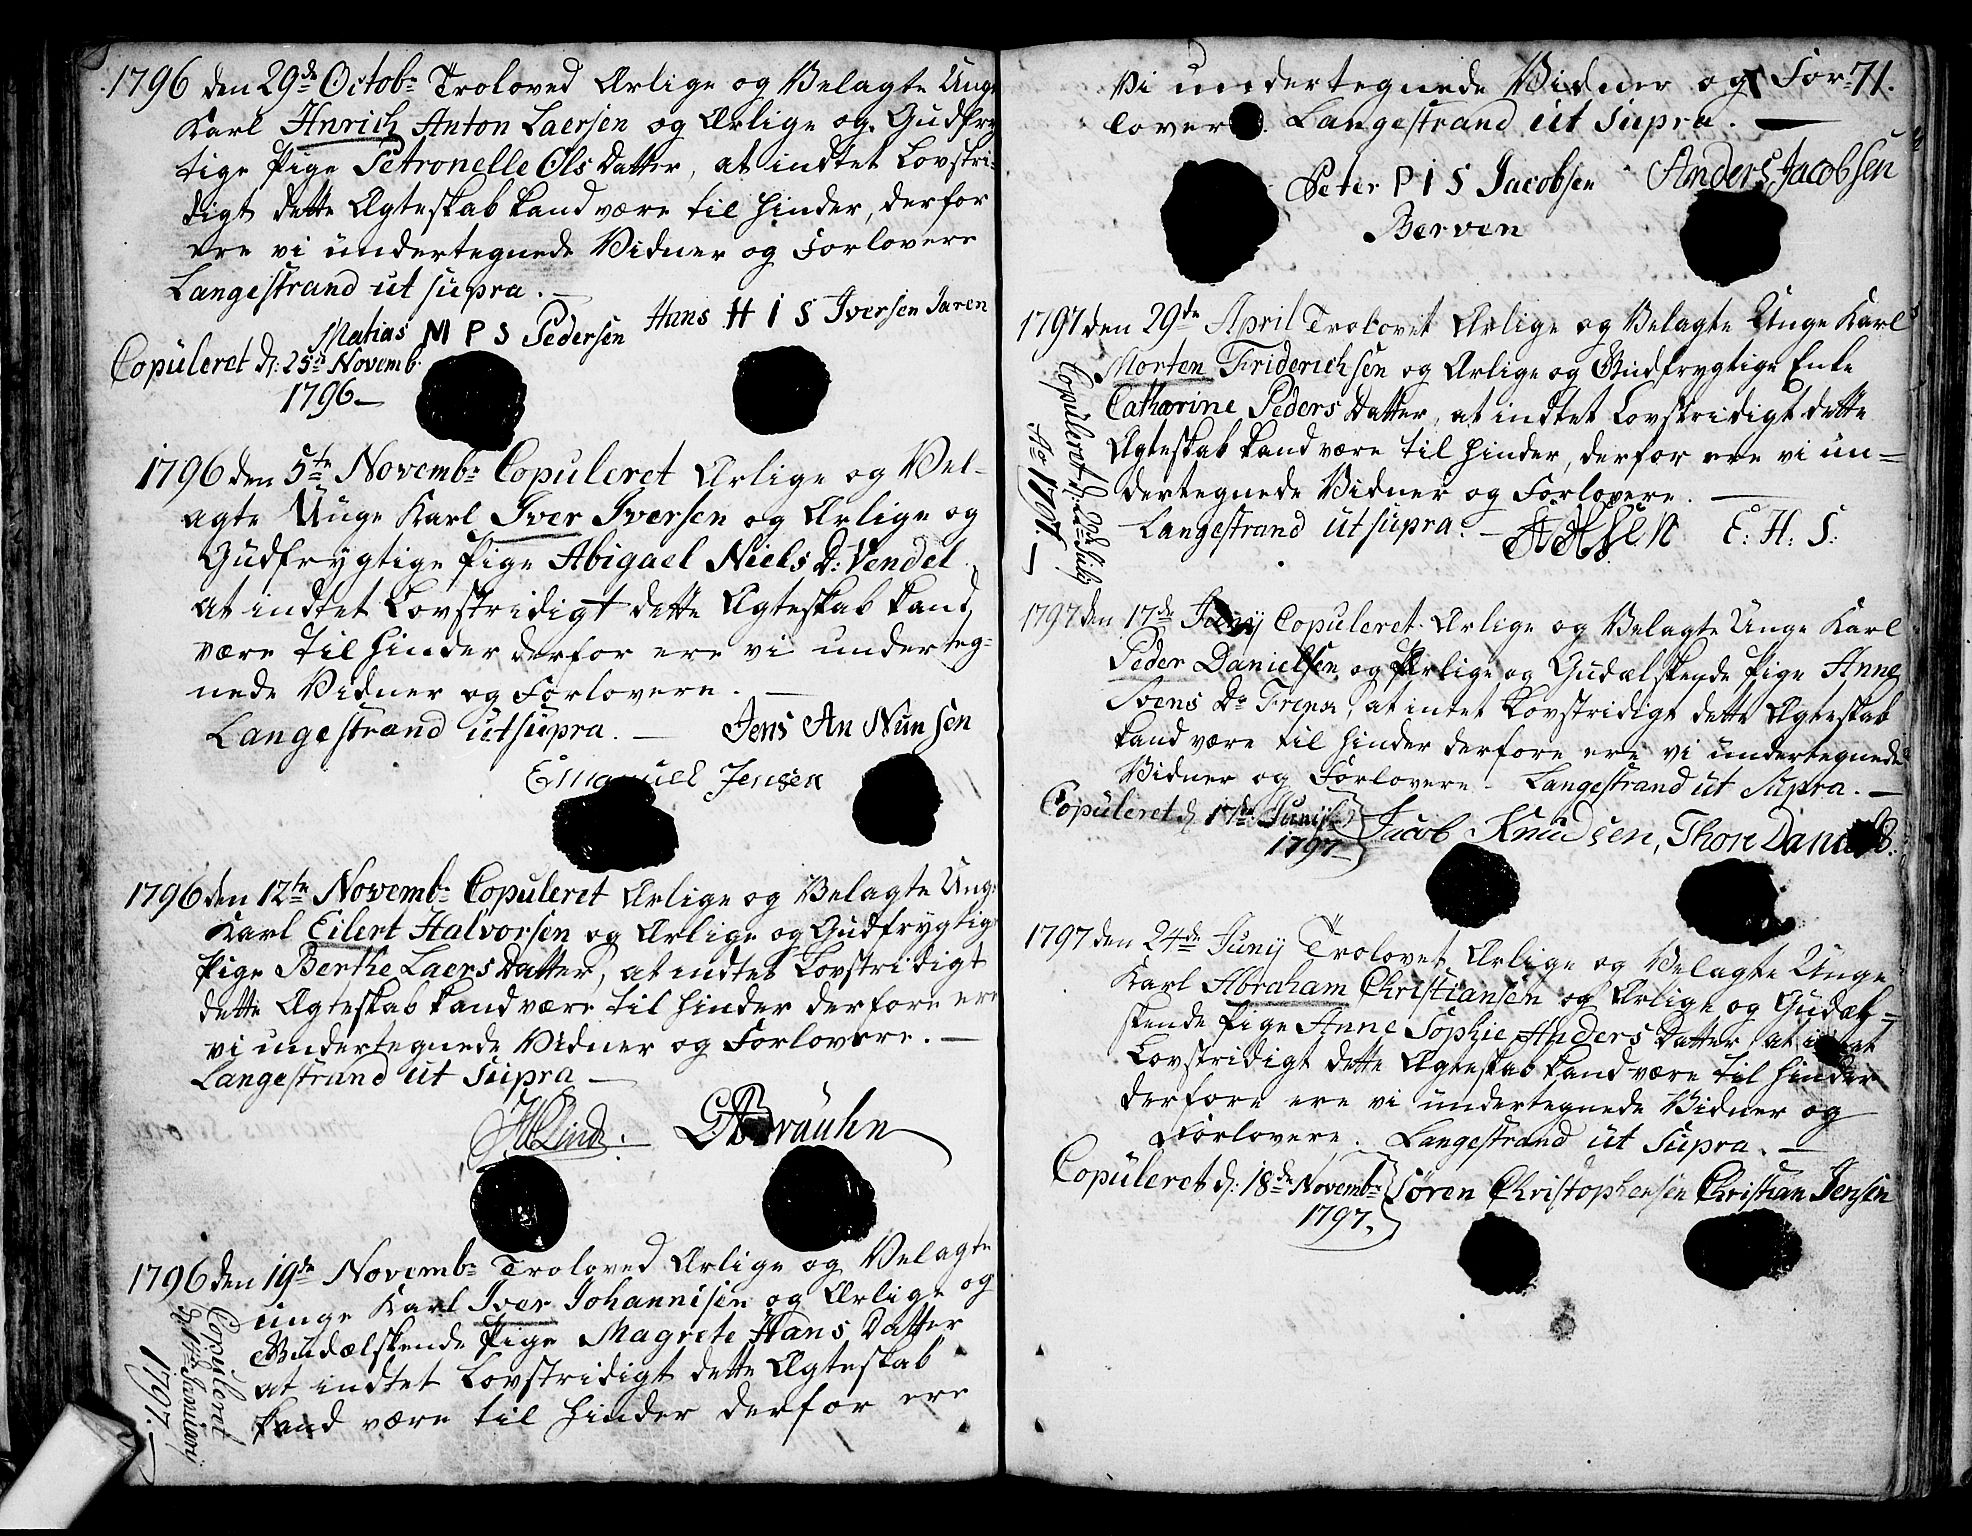 1796 den 29de Octobr Troloved Ærlige og Velagte Unge
Karl Hnrich Anton Laersen og Ærlige og Gudfryg
tige Pige Petronelle Ols Datter, at indtet Lovstri-
digt dette Ægteskab kand være til Hinder, derfor
ere vi undertegnede Vidner og Forlovere
Langestrand ut supra.
Matias M P S Pedersen Hans H I S Iversen Jaren
Copuleret d: 25de Novemb.
1796
1796 den 5te Novembr Copuleret Ærlige og Vel-
agte Unge Karl Iver Iversen og Ærlige og
Gudfrygtige Pige Abigael Niels D: Vendel
at indtet Lovstridigt dette Ægteskab kand
være til Hinder derfor ere vi underteg-
nede Vidner og Forlovere.
Langestrand ut supra. Jens An Nunsen
Emanuel Jensen
1796 den 12te Novembr Copuleret Ærlige og Velagte Unge
Karl Eilert Halvorsen og Ærlige og Gudfrygtige
Pige Berthe Laers Datter, at indtet Lovstridigt
dette Ægteskab kand være til Hinder derfore ere
vi undertegnede Vidner og Forlovere.
Langestrand ut Supra
Lind. Bräuhn
1796 den 19de Novembr Troloved Ærlige og Velagte
unge Karl Iver Johannisen og Ærlige og
Gudælskende Pige Magrete Hans Datter
at indtet Lovstridigt dette Ægteskab
kand være til Hinder derfor ere
Copuleret
Januarij
1797.
71.
Vi undertegnede Vidner og For-
lovere. Langestrand ut Supra.
Peter P I S Jacobsen Anders Jacobsen
Berven
1797 den 29de April Trolovet Ærlige og Velagte Unge Karl
Morten Friderichsen og Ærlige og Gudfrygtige Enke
Catharine Peders Datter, at indtet Lovstridigt dette
Ægteskab kand være til Hinder, derfor ere vi un=
dertegnede Vidner og Forlovere.
Langestrand ut supra. E: H: S:
Copuleret d: 22de July
Ao 1797.
1797 den 17de Junij Copuleret Ærlige og Velagte Unge Karl
Peder Danielsen og Ærlige og Gudælskende Pige Anne
Svens Dr , at intet Lovstridigt dette Ægteskab
kand være til Hinder derfore ere vi undertegnede
Vidner og Forlovere. Langestrand ut Supra.
Copuleret d 17de Junij Jacob Knudsen, Thore
1797
1797 den 24de Junij Trolovet Ærlige og Velagte Unge
Karl Abraham Christiansen og Ærlige og Gudæl=
skende Pige Anne Sophie Anders Datter, at intet
Lovstridigt dette Ægteskab kand være til Hinder
derfore ere vi undertegnede Vidner og
Forlovere. Langestrand ut Supra.
Copuleret d: 18de Novembr Søren Christophersen Christian Jensen
1797.